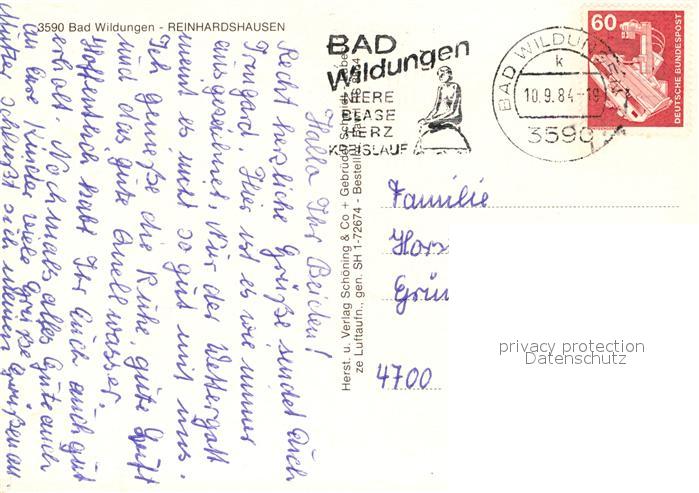 3590 Bad Wildungen - REINHARDSHAUSEN
BAD
Wildungen
NIERE
BLASE
HERZ
KREISLAUF
BAD WILDUNGEN
k
10.9.84-19
3590
60
DEUTSCHE BUNDESPOST
Hallo Ihr Beiden!
Recht herzliche Grüße sendet Dich
Irmgard. Hier ist es wie immer
ausgezeichnet. Nur der Wettergott
meint es nicht so gut mit uns.
Ich genieße die Ruhe, gute Luft
und das gute Quellwasser.
Hoffentlich habt Ihr Euch auch gut
erholt. Nochmals alles Gute auch
an Eure Kinder viele Grüße
Mutter schließt sich meinen Grüßen an
Herst. u. Verlag Schöning & Co + Gebrüder Schmidt
ze Luftaufn., gen. SH 1-72674 - Bestell
Familie
Horz
Grün
4700
privacy protection
Datenschutz